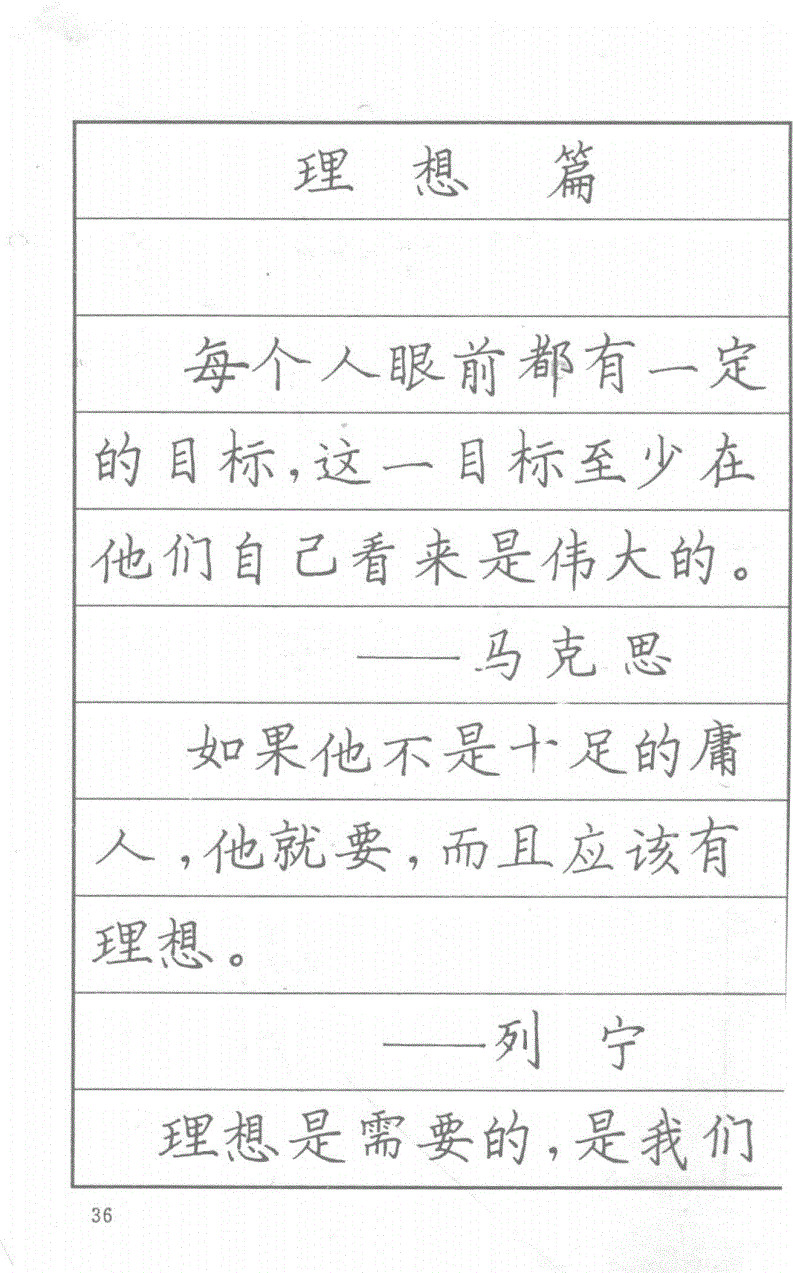 理想篇
每个人眼前都有一定
的目标,这一目标至少在
他们自己看来是伟大的。
——马克思
如果他不是十足的庸
人,他就要,而且应该有
理想。
——列宁
理想是需要的,是我们
36